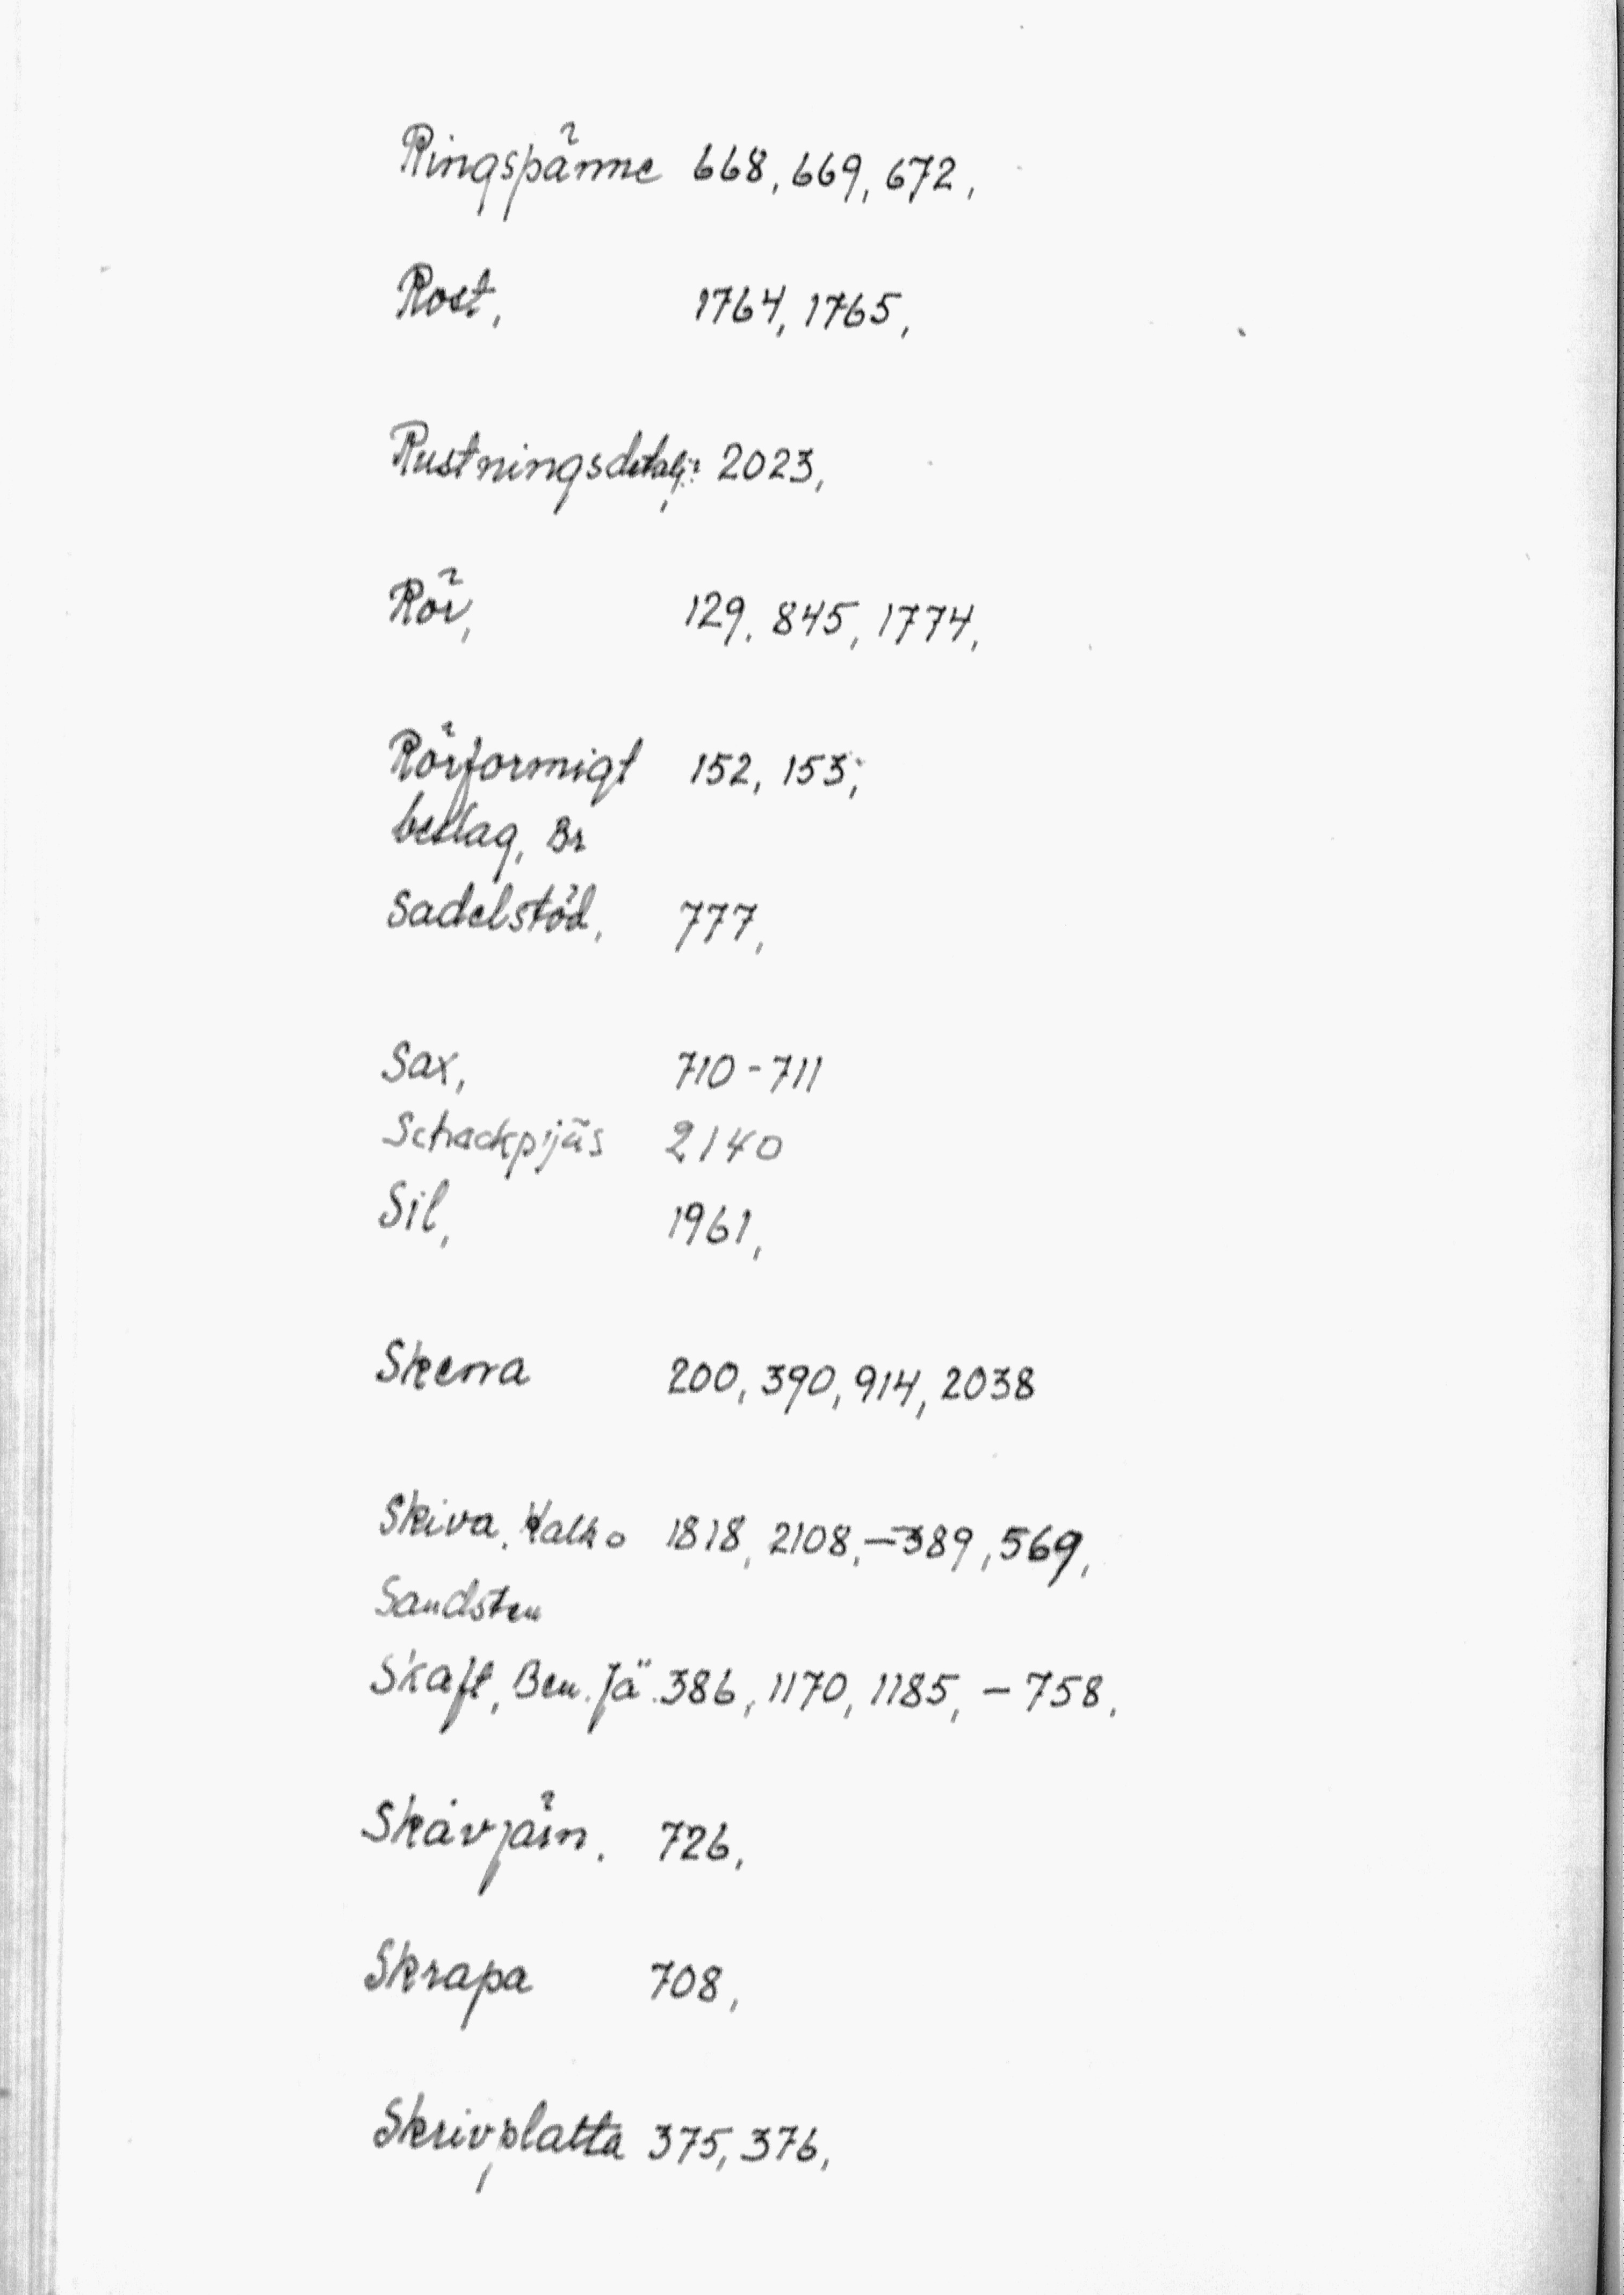 Ringspänne 668, 669, 672,
Rost, 1764, 1765,
Rustningsdetalj: 2023,
Rör, 129. 845, 1774,
Rörformigt 152, 153;
beslag, Br
Sadelstöd, 777,
Sax, 710-711
Schackpjäs 2140
Sil, 1961,
Skena 200, 390, 914, 2038
Skiva, Kalk o 1818, 2108, - 389, 569,
Sandsten
Skaft, Ben. Jä. 386, 1170, 1185, - 758,
Skavjärn. 726,
Skrapa 708,
Skrivplatta 375, 376,